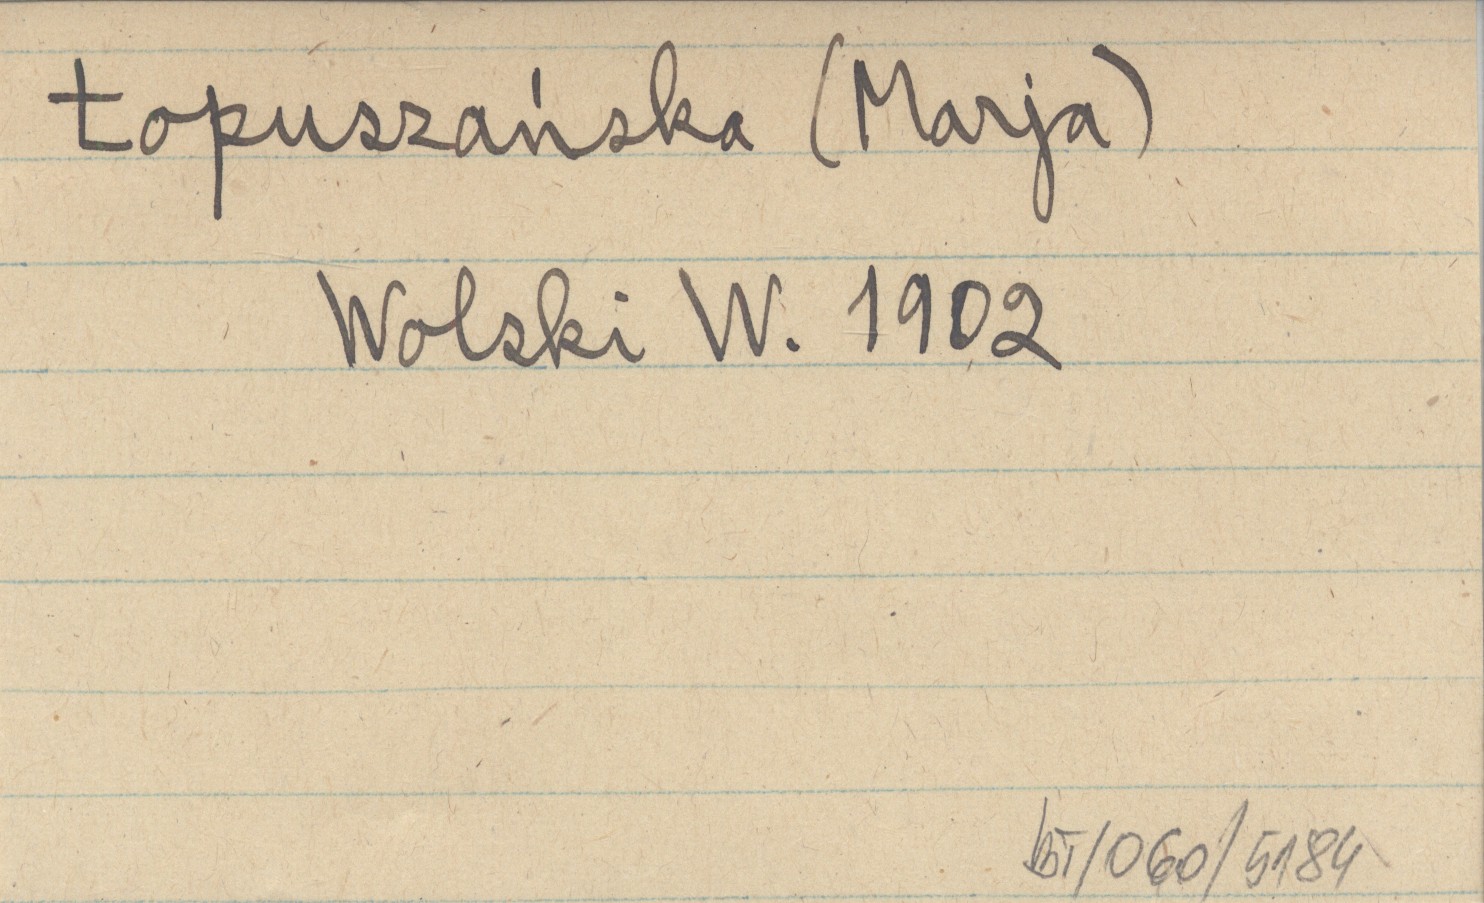 Łopuszańska (Marja)
Wolski W. 1902
/060/5184